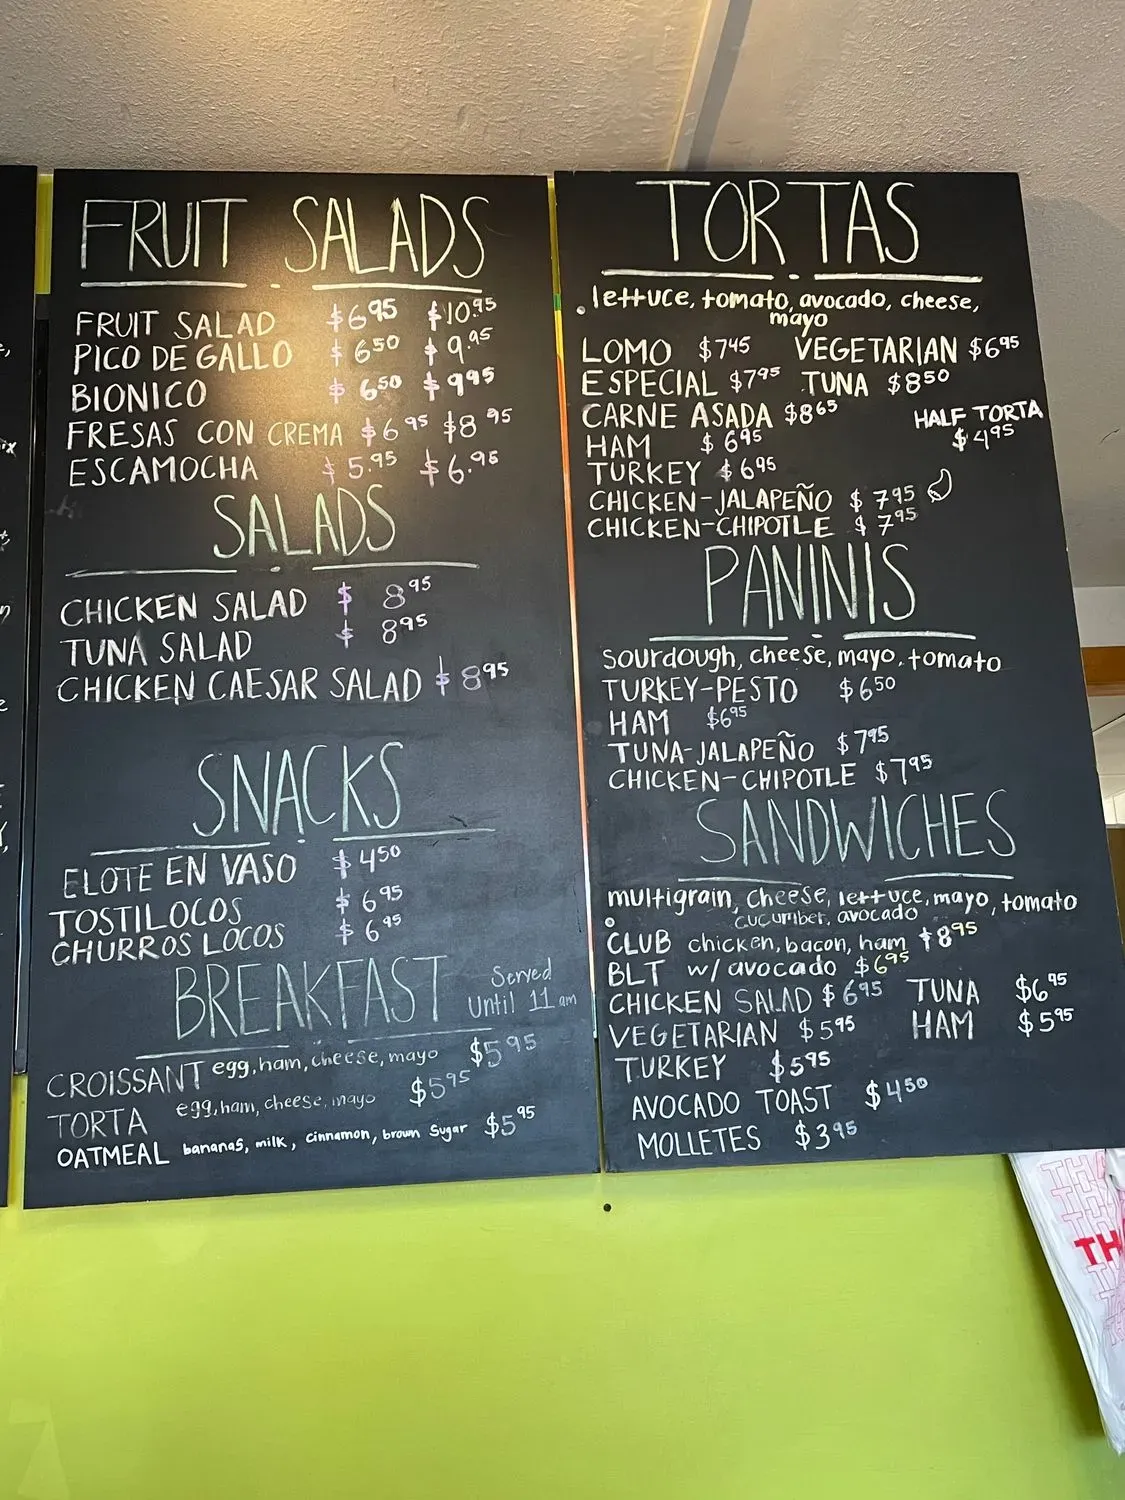 FRUIT SALADS
FRUIT SALAD $6.95 $10.95
PICO DE GALLO $6.50 $9.95
BIONICO $6.50 $9.95
FRESAS CON CREMA $6.95 $8.95
ESCAMOCHA $5.95 $6.95
SALADS
CHICKEN SALAD $8.95
TUNA SALAD $8.95
CHICKEN CAESAR SALAD $8.95
SNACKS
ELOTE EN VASO $4.50
TOSTILOCOS $6.95
CHURROS LOCOS $6.95
BREAKFAST Served
Until 11am
CROISSANT egg, ham, cheese, mayo $5.95
TORTA egg, ham, cheese, mayo $5.95
OATMEAL bananas, milk, cinnamon, brown sugar $5.95
TORTAS
lettuce, tomato, avocado, cheese,
mayo
LOMO $7.45 VEGETARIAN $6.95
ESPECIAL $7.95 TUNA $8.50
CARNE ASADA $8.65 HALF TORTA
HAM $6.95 $4.95
TURKEY $6.95
CHICKEN-JALAPEÑO $7.95
CHICKEN-CHIPOTLE $7.95
PANINIS
sourdough, cheese, mayo, tomato
TURKEY-PESTO $6.50
HAM $6.95
TUNA-JALAPEÑO $7.95
CHICKEN-CHIPOTLE $7.95
SANDWICHES
multigrain, cheese, lettuce, mayo, tomato
cucumber, avocado
CLUB chicken, bacon, ham $8.95
BLT w/ avocado $6.95
CHICKEN SALAD $6.95 TUNA $6.95
VEGETARIAN $5.95 HAM $5.95
TURKEY $5.95
AVOCADO TOAST $4.50
MOLLETES $3.95